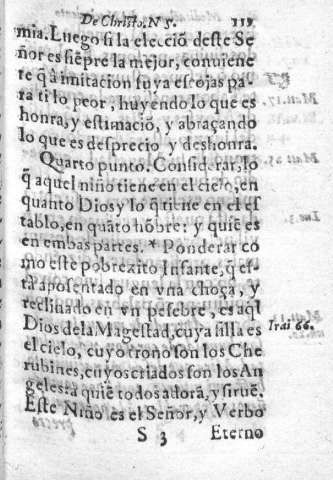 De Christo. N S. 119
mia. Luego si la elecciõ deste Se
ñor es siẽpre la mejor, conuiene
te q̃ à imitacion suya escojas pa
ra ti lo peor, huyendo lo que es
honra, y estimaciõ, y abraçando
lo que es desprecio y deshonra.
Quarto punto. Considerar, lo
q̃ aquel niño tiene en el cielo, en
quanto Dios y lo q̃ tiene en el es
tablo, en quãto hõbre; y quiẽ es
en embas partes. * Ponderar co
mo este pobrezito Infante, q̃ es-
tà aposentado en vna choça, y
reclinado en vn pesebre, es aq̃l
Dios de la Magestad, cuya silla es
Isai 66.
el cielo, cuyo trono son los Che
rubines, cuyos criados son los An
geles, a quiẽ todos adorã, y siruẽ.
Este Niño es el Señor, y Verbo
S 3 Eterno